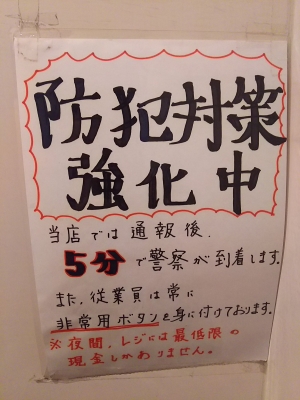 防犯対策
強化中
当店では通報後、
5分で警察が到着します。
また、従業員は常に
非常用ボタンを身に付けております。
※夜間、レジには最低限の
現金しかありません。